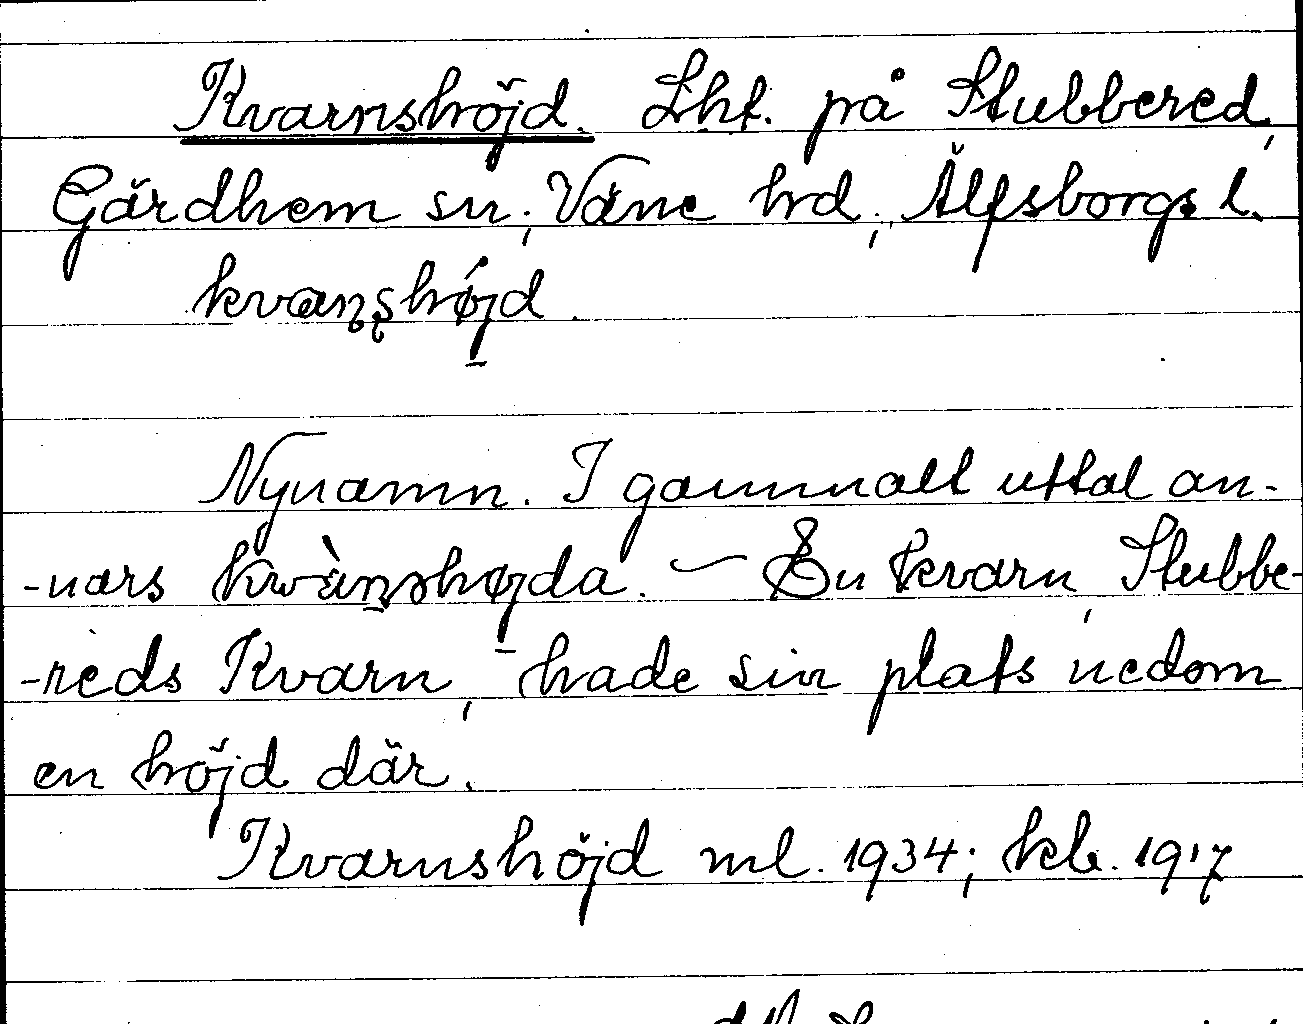 Kvarnshöjd. Lht. på Stubbered,
Gärdhem sn; Väne hd; Älfsborgs l.
kvanshöjd.
Nynamn. I gammalt uttal an-
-nars kwànshøjda. – En kvarn, Stubbe-
-reds Kvarn, hade sin plats nedom
en höjd där.
Kvarnshöjd ml. 1934; kb. 1917